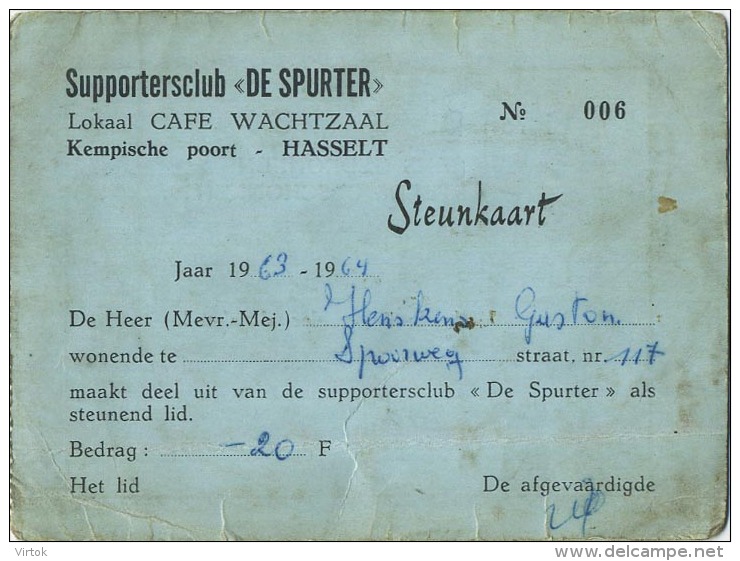 Supportersclub «DE SPURTER»
Lokaal CAFE WACHTZAAL
Kempische poort - HASSELT
№ 006
Steunkaart
Jaar 1963 - 1964
De Heer (Mevr.-Mej.) Henskens Guston
wonende te Spoorweg straat, nr. 117
maakt deel uit van de supportersclub «De Spurter» als
steunend lid.
Bedrag: -20 F
Het lid De afgevaardigde
Virtok
delcampe.net